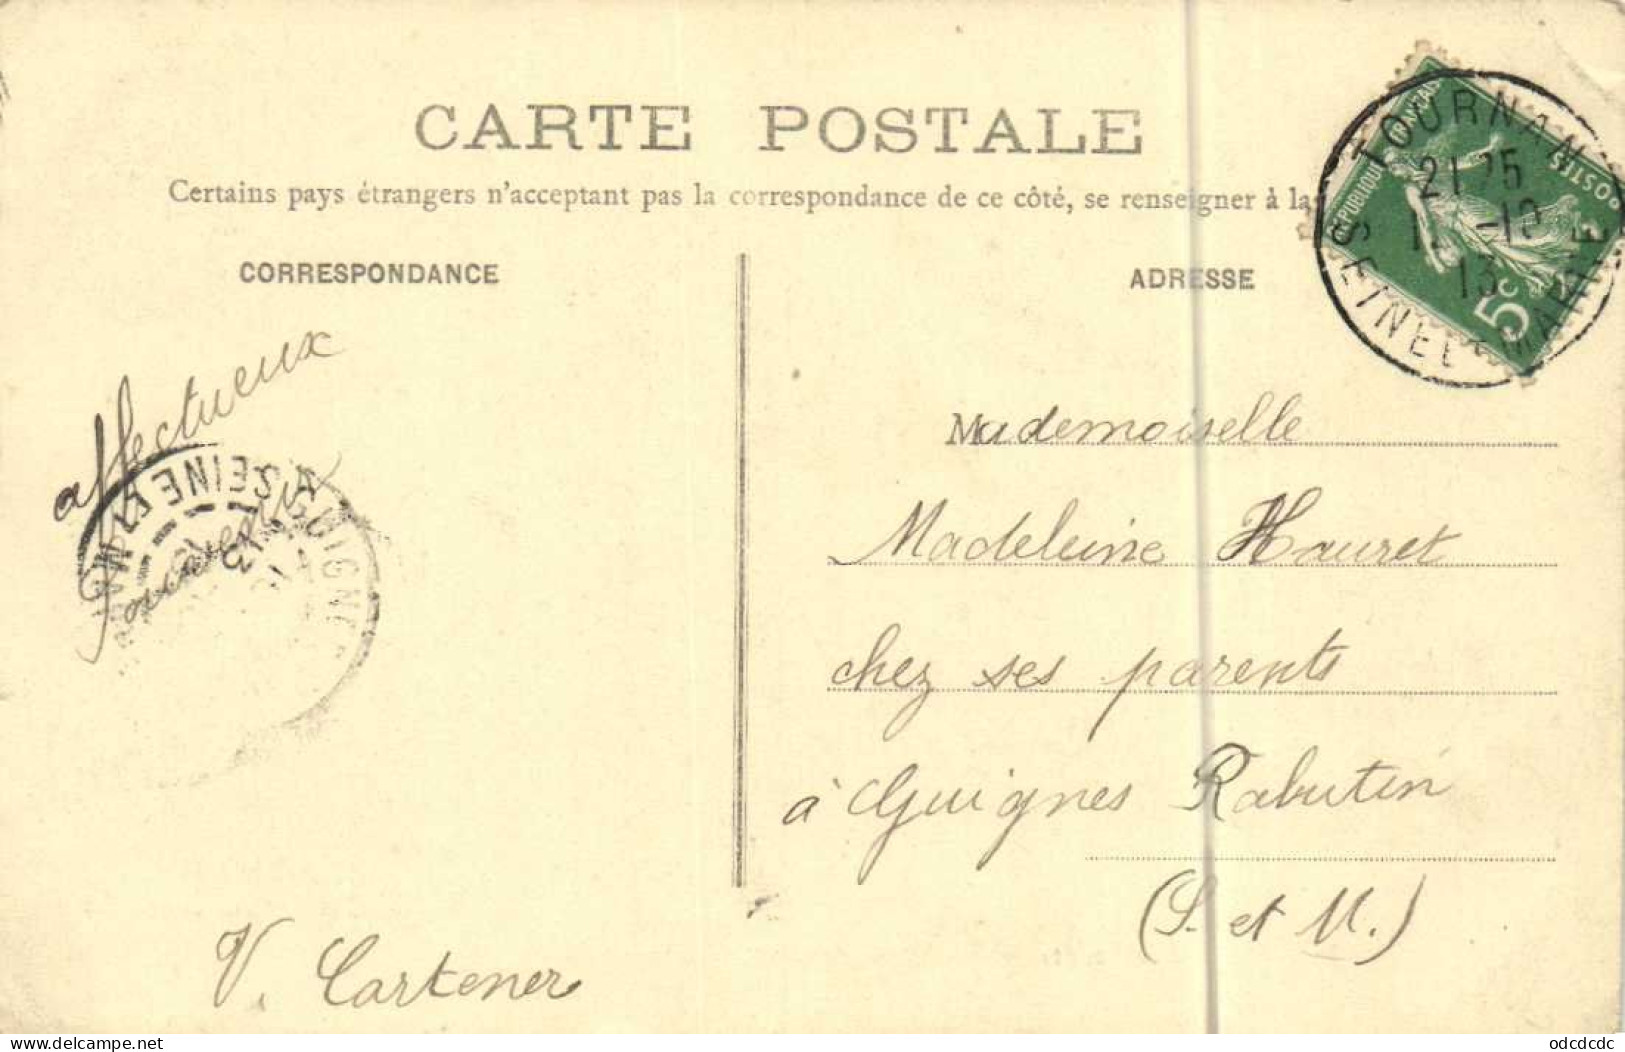 CARTE POSTALE
Certains pays étrangers n'acceptent pas la correspondance de ce côté, se renseigner à la
CORRESPONDANCE
ADRESSE
TOURNAN
21 25
-10
13
SEINE ET MARNE
RÉPUBLIQUE FRANÇAISE
POSTES
5c
affectueux
SEINE ET MARNE
GUIGNES
V. Cartener
Mademoiselle
Madeleine Hauret
chez ses parents
à Guignes Rabutin
(S. et M.)
delcampe.net
odcdcdc